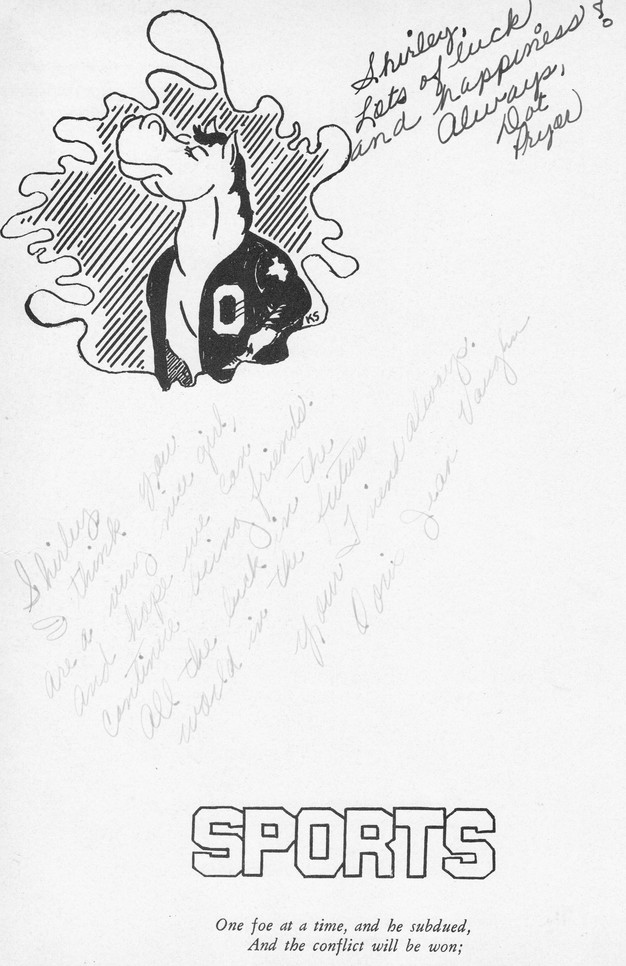 Shirley,
Lots of luck
and happiness!
Always,
Dot
Pryor
O
KS
Shirley
I think you
are a very nice girl,
and hope we can
continue being friends.
All the luck in the
world in the future
Your Friend always.
Doris Jean Vaughn
SPORTS
One foe at a time, and he subdued,
And the conflict will be won;